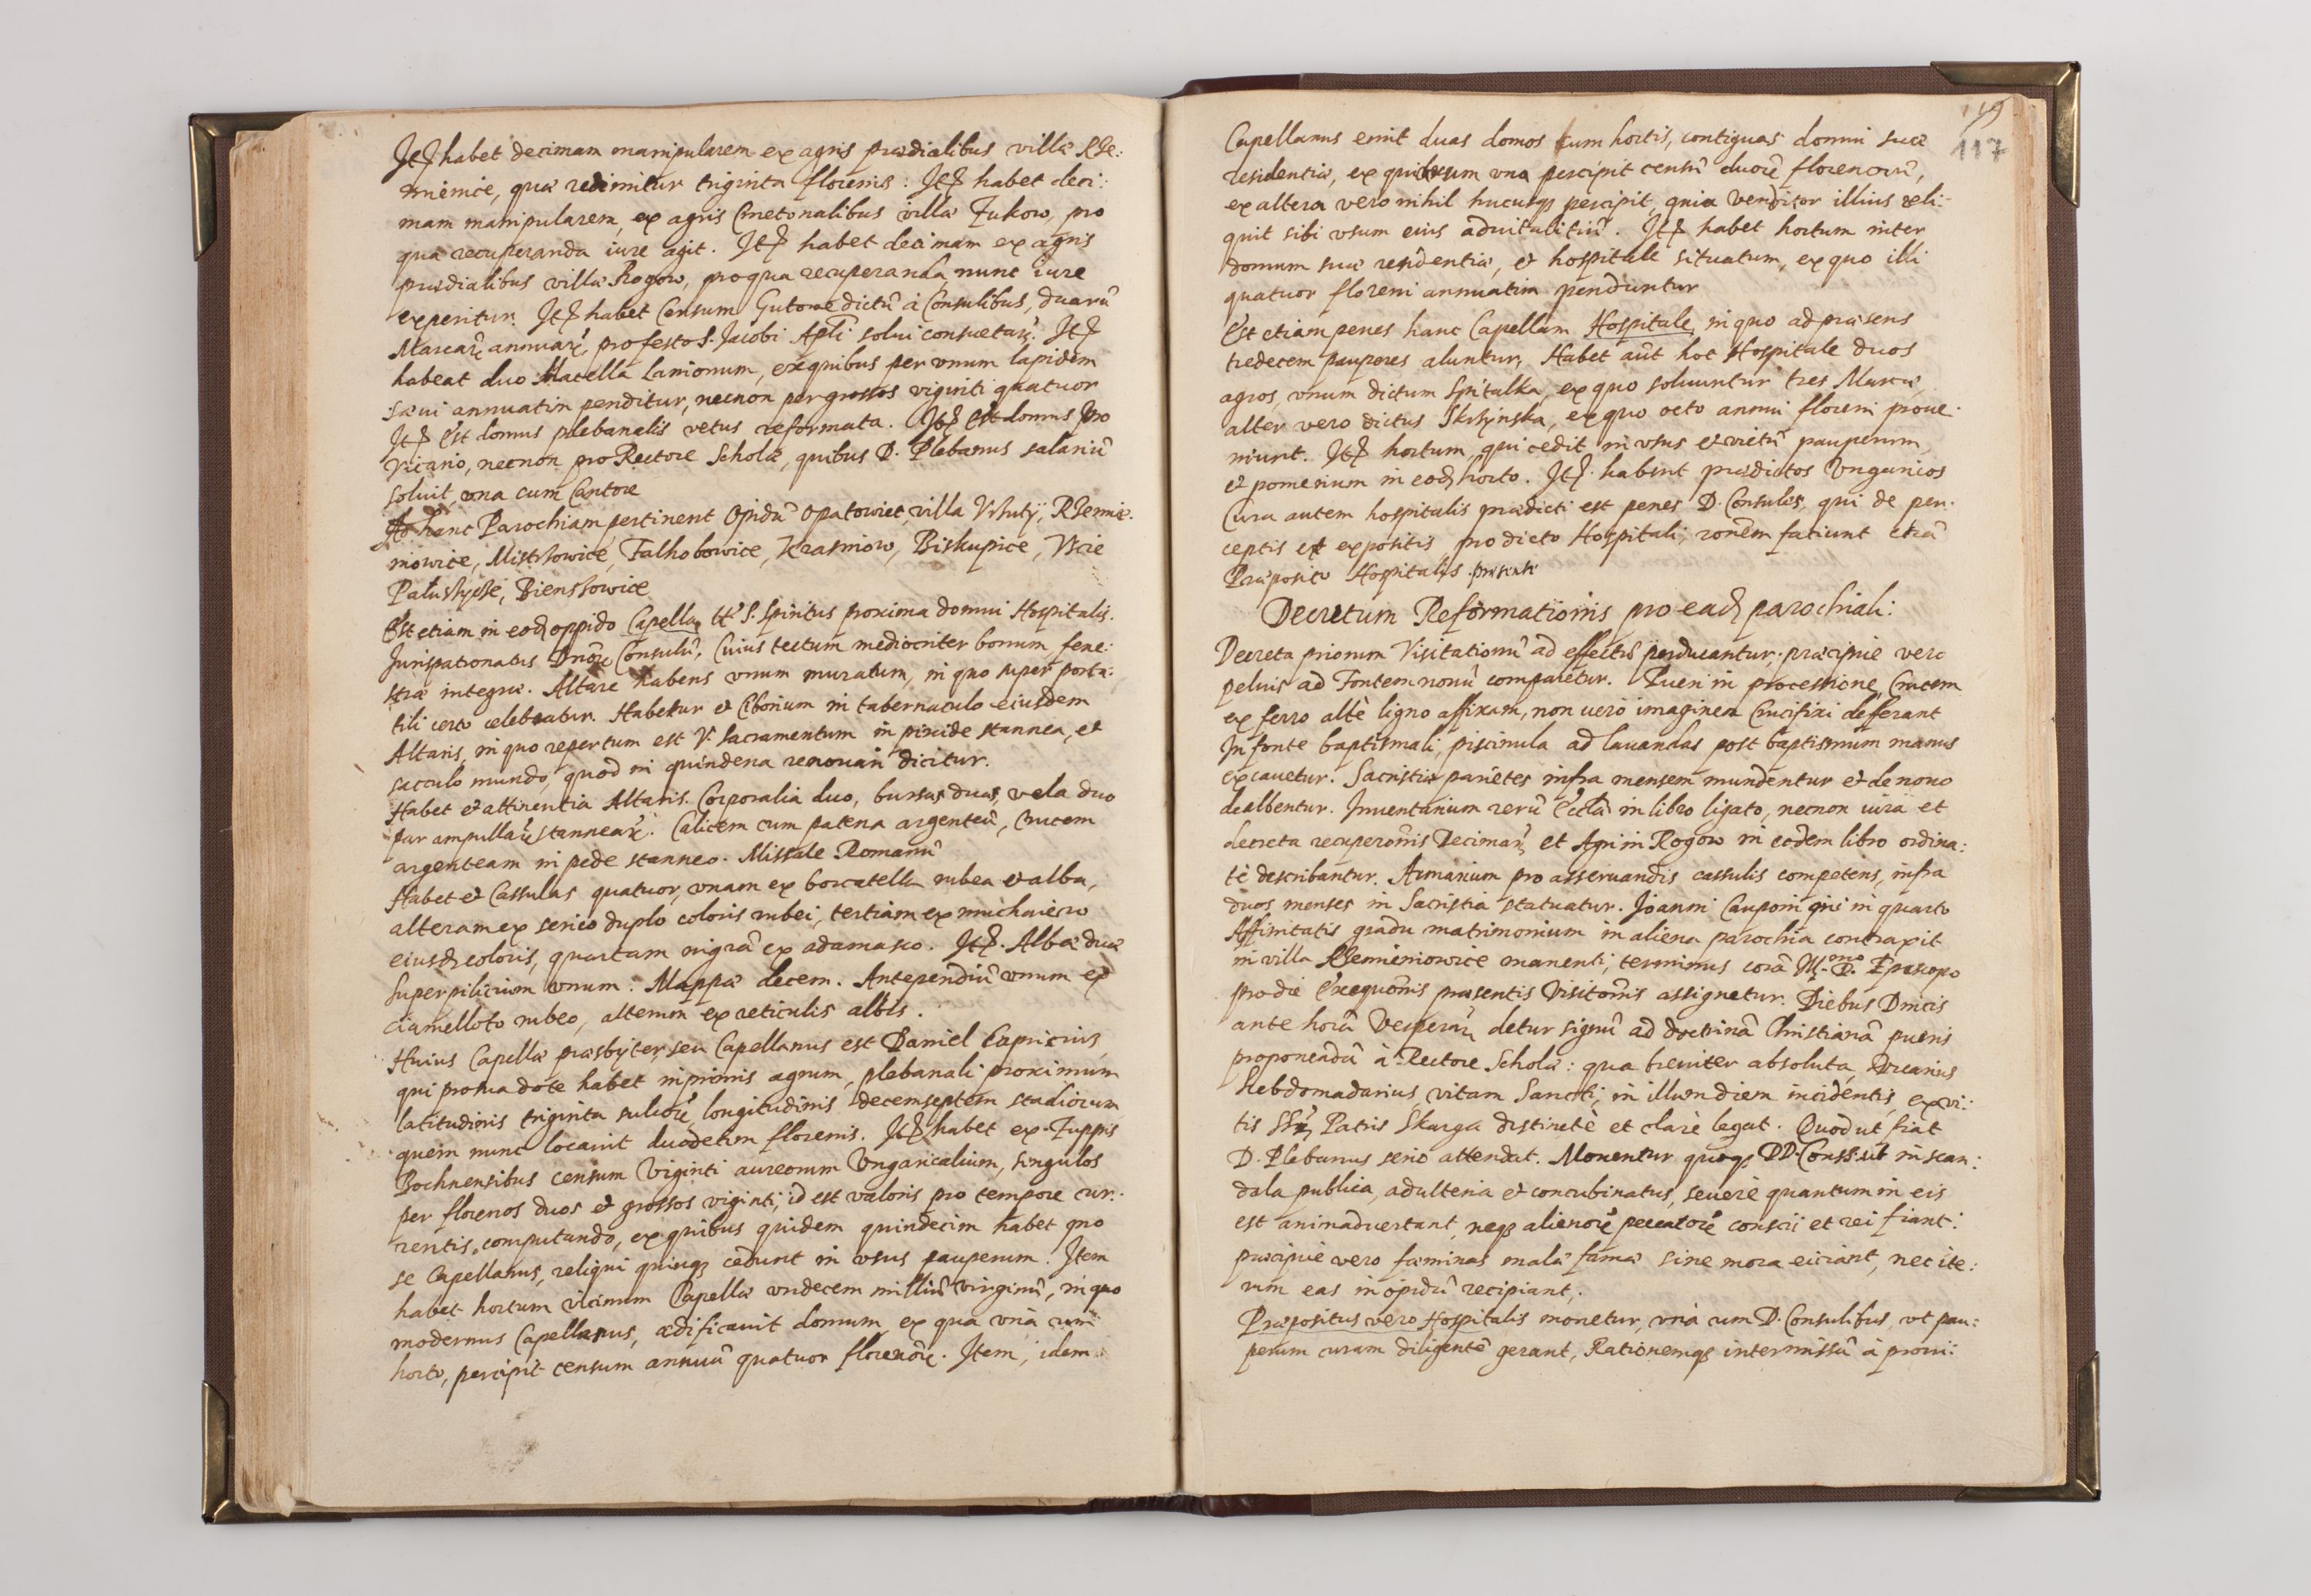 Itē habet decimam manipularem ex agris prædialibus villæ Rze:
mienice, quæ redimitur triginta florenis: Itē habet deci:
mam manipularem, ex agris Cmetonalibus villæ Zukow, pro
qua recuperanda iure agit. Itē habet decimam ex agris
prædialibus villæ Rogow, pro qua recuperanda, nunc iure
experitur. Itē habet Censum Gutowe dictū à Consulibus, duarū
Marcarū annuarū, pro festo S. Jacobi Apli solui consuetarū. Itē
habeat duo Macella Lanionum, ex quibus per vnum lapidem
sæui annuatim penditur, necnon per grossos viginti quatuor
Itē Est domus plebanalis vetus reformata. Itē Est domus pro
Vicario, necnon pro Rectore Scholæ, quibus D. Plebanus salariū
soluit, vna cum Cantore
Ad hanc Parochiam pertinent Opidū Opatowiec, villa Vrhutÿ, Rzemie:
niowice, Mistrzowice, Falhobowice, Krasniow, Biskupice, Vscie
Bienszowice
Est etiam in eodē oppido Capella tt° S. Spiritus proxima domui Hospitalis.
Jurispatronatus Dnorū Consulū, Cuius tectum mediocriter bonum, fene:
stræ integræ. Altare habens vnum muratum, in quo super porta:
tili certo celebratur. Habetur et Ciborium in tabernaculo eiusdem
Altaris, in quo repertum est V. Sacramentum in pixide stannea, et
sacculo mundo, quod in quindena renouari dicitur.
Habet et attinentia Altaris. Corporalia duo, bursas duas, vela duo
par ampullarū stannearū. Calicem cum patena argenteū, Crucem
argenteam in pede stanneo. Missale Romanū
Habet et Cassulas quatuor, vnam ex borcatella rubea et alba,
alteram ex serico duplo coloris rubei, tertiam ex muchaiero
eiusdē coloris, quartam nigrā ex adamasco. Itē. Albæ duæ
Superpilicium vnum. Mappæ decem. Antependiū vnum ex
ciamelloto rubeo, alterum ex reticulis albis.
Huius Capellæ præsbyter seu Capellanus est Daniel Capricius,
qui pro sua dote habet inprimis agrum, plebanali proximum
latitudinis triginta sulcorū, longitudinis decemseptem stadiorum
quem nunc locauit duodecim florenis. Itē habet ex Zuppis
Bochnensibus censum Viginti aureorum Vngaricalium, singulos
per florenos duos et grossos viginti, id est valoris pro tempore cur:
rentis, computando, ex quibus quidem quindecim habet pro
se Capellanus, reliqui quinq3 cedunt in vsus pauperum. Item
habet hortum vicinum Capellæ vndecem milliū Virginū, in quo
modernus Capellanus, ædificauit domum, ex qua vnà cum
horto, percipit censum annuū quatuor florenorū. Item, idem
119
117
Capellanus emit duas domos cum hortis, contiguas domui suæ
residentiæ, ex quibus vna percipit censū duorū florenorū,
ex altera vero nihil hucusq3 percipit, quia Venditor illius reli:
quit sibi vsum eius aduitalitiū. Itē habet hortum inter
domum suæ residentiæ, et hospitale situatum, ex quo illi
quatuor floreni annuatim penduntur
Est etiam penes hanc Capellam Hospitale, in quo ad præsens
tredecem pauperes aluntur, Habet aūt hoc Hospitale duos
agros, vnum dictum Spitalka, ex quo soluuntur tres Marcæ,
alter vero dictus Skrzynska, ex quo octo annui floreni proue:
niunt. Itē hortum, qui cedit in vsus et victū pauperum,
et pomerium in eodē horto. Itē. habent prædictos Vngaricos
Cura autem hospitalis prædicti est penes D. Consules, qui de per:
ceptis et expositis, pro dicto Hospitali, ronēm fatiunt etiā
Præposito Hospitalis. præsente
Decretum Reformationis pro eadē parochiali:
Decreta priorum Visitationū ad effectū perducantur, præcipuè vero
peluis ad Fontem nouū comparetur. Pueri in processione, Crucem
ex ferro altè ligno affixam, non uero imaginem Crucifixi defferant
In fonte baptismali, piscinula ad lauandas post baptismum manus
excauetur. Sacristiæ parietes infra mensem mundentur et de nouo
dealbentur. Inuentarium rerū Ecclæ in libro ligato, necnon iura et
decreta recuperōnis Decimarū et Agri in Rogow in eodem libro ordina:
tè describantur. Armarium pro asseruandis cassulis competens, infra
duos menses in Sacristia statuatur. Joanni Cauponi qui in quarto
Affinitatis gradu matrimonium in aliena parochia contraxit
in villa Rzemieniowice manenti, terminus corā Illmo D. Episcopo
pro die Exequōnis præsentis Visitōnis assignetur. Diebus Dnicis
ante horā Vesperarū detur signū ad doctrinā Christianā pueris
proponendā à Rectore Scholæ: qua breuiter absoluta, Vicarius
hebdomadarius, vitam Sancti, in illum diem incidentis, ex vi:
tis SSrū Patris Skarga distinctè et clarè legat. Quod ut fiat
D. Plebanus serio attendat. Monentur quoq3 DD. Conss. ut in scan:
dala publica, adulteria et concubinatus, seuerè quantum in eis
est animaduertant, neq3 alienorū peccatorū conscii et rei fiant:
præcipuè vero fæminas malæ famæ sine mora eiciant, nec ite:
rum eas in opidū recipiant.
Præpositus vero Hospitalis monetur, vnà cum D. Consulibus, vt pau:
perum curam diligentē gerant, Rationemq3 intermissū à proui: